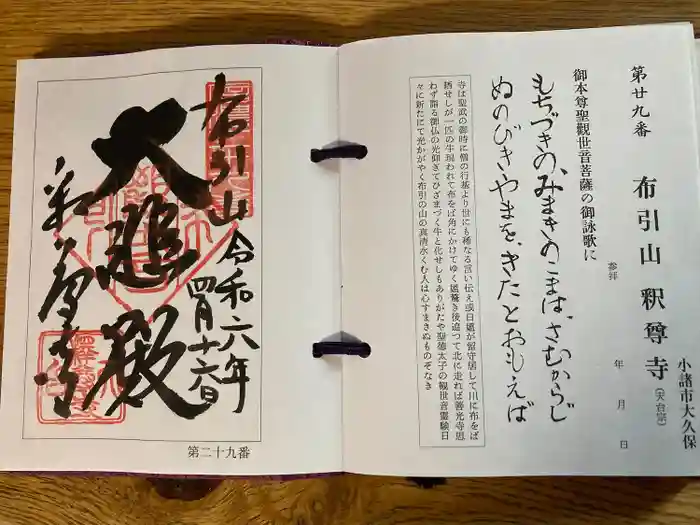 第廿九番 布引山 釈尊寺(天台宗)
小諸市大久保
参拝 年 月 日
御本尊聖観世音菩薩の御詠歌に
もちづきの、みまきのこまは、さむからじ
ぬのびきやまを、きたとおもえば
寺は聖武の御時に僧の行基より世にも稀なる言い伝え或日嫗が留守居して川に布をば
晒せしが一匹の牛現われて布をば角にかけてゆく嫗驚き後追つて北に走れば善光寺思
わず詣る御仏の光仰ぎてひざまづく牛と化せしもありがたや聖徳太子の観世音霊験日
々に新たにて光かがやく布引の山の真清水くむ人は心すまきぬものぞなき
布引山
大悲殿
釈尊寺
令和六年
四月十六日
第二十九番